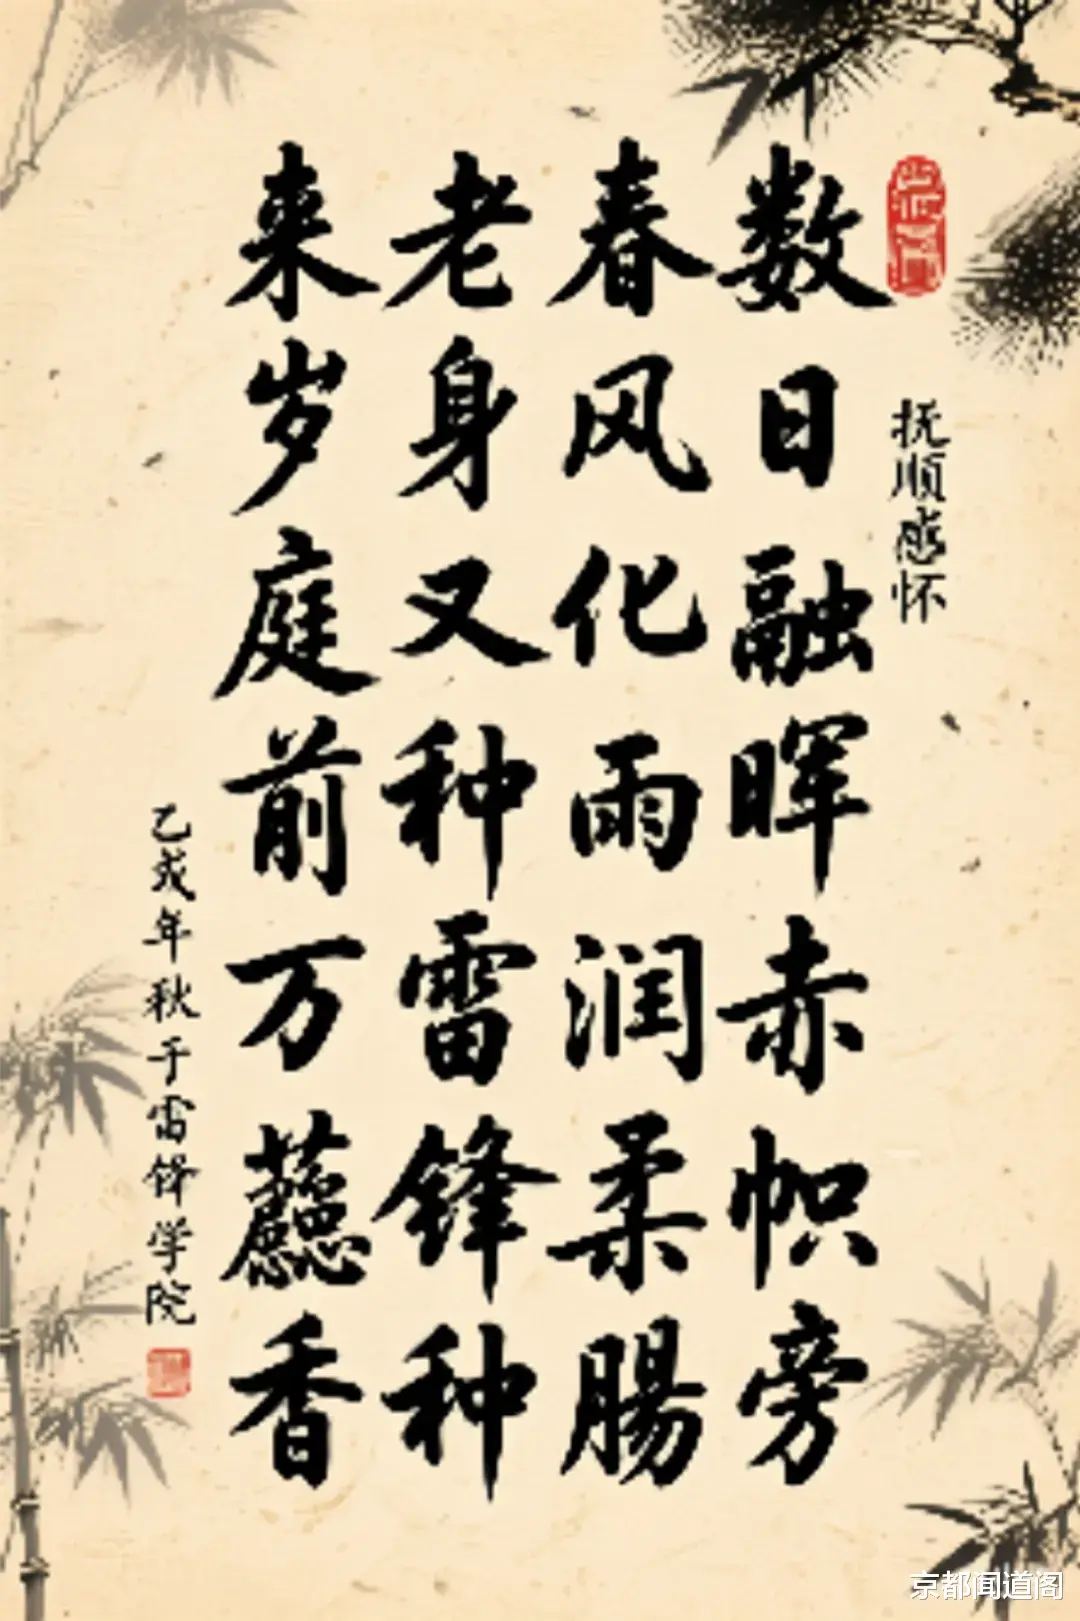 抚顺感怀
数日融晖赤帜旁
春风化雨润柔肠
老身又种雷锋种
来岁庭前万蕊香
乙戌年秋于雷锋学院
京都闻道阁